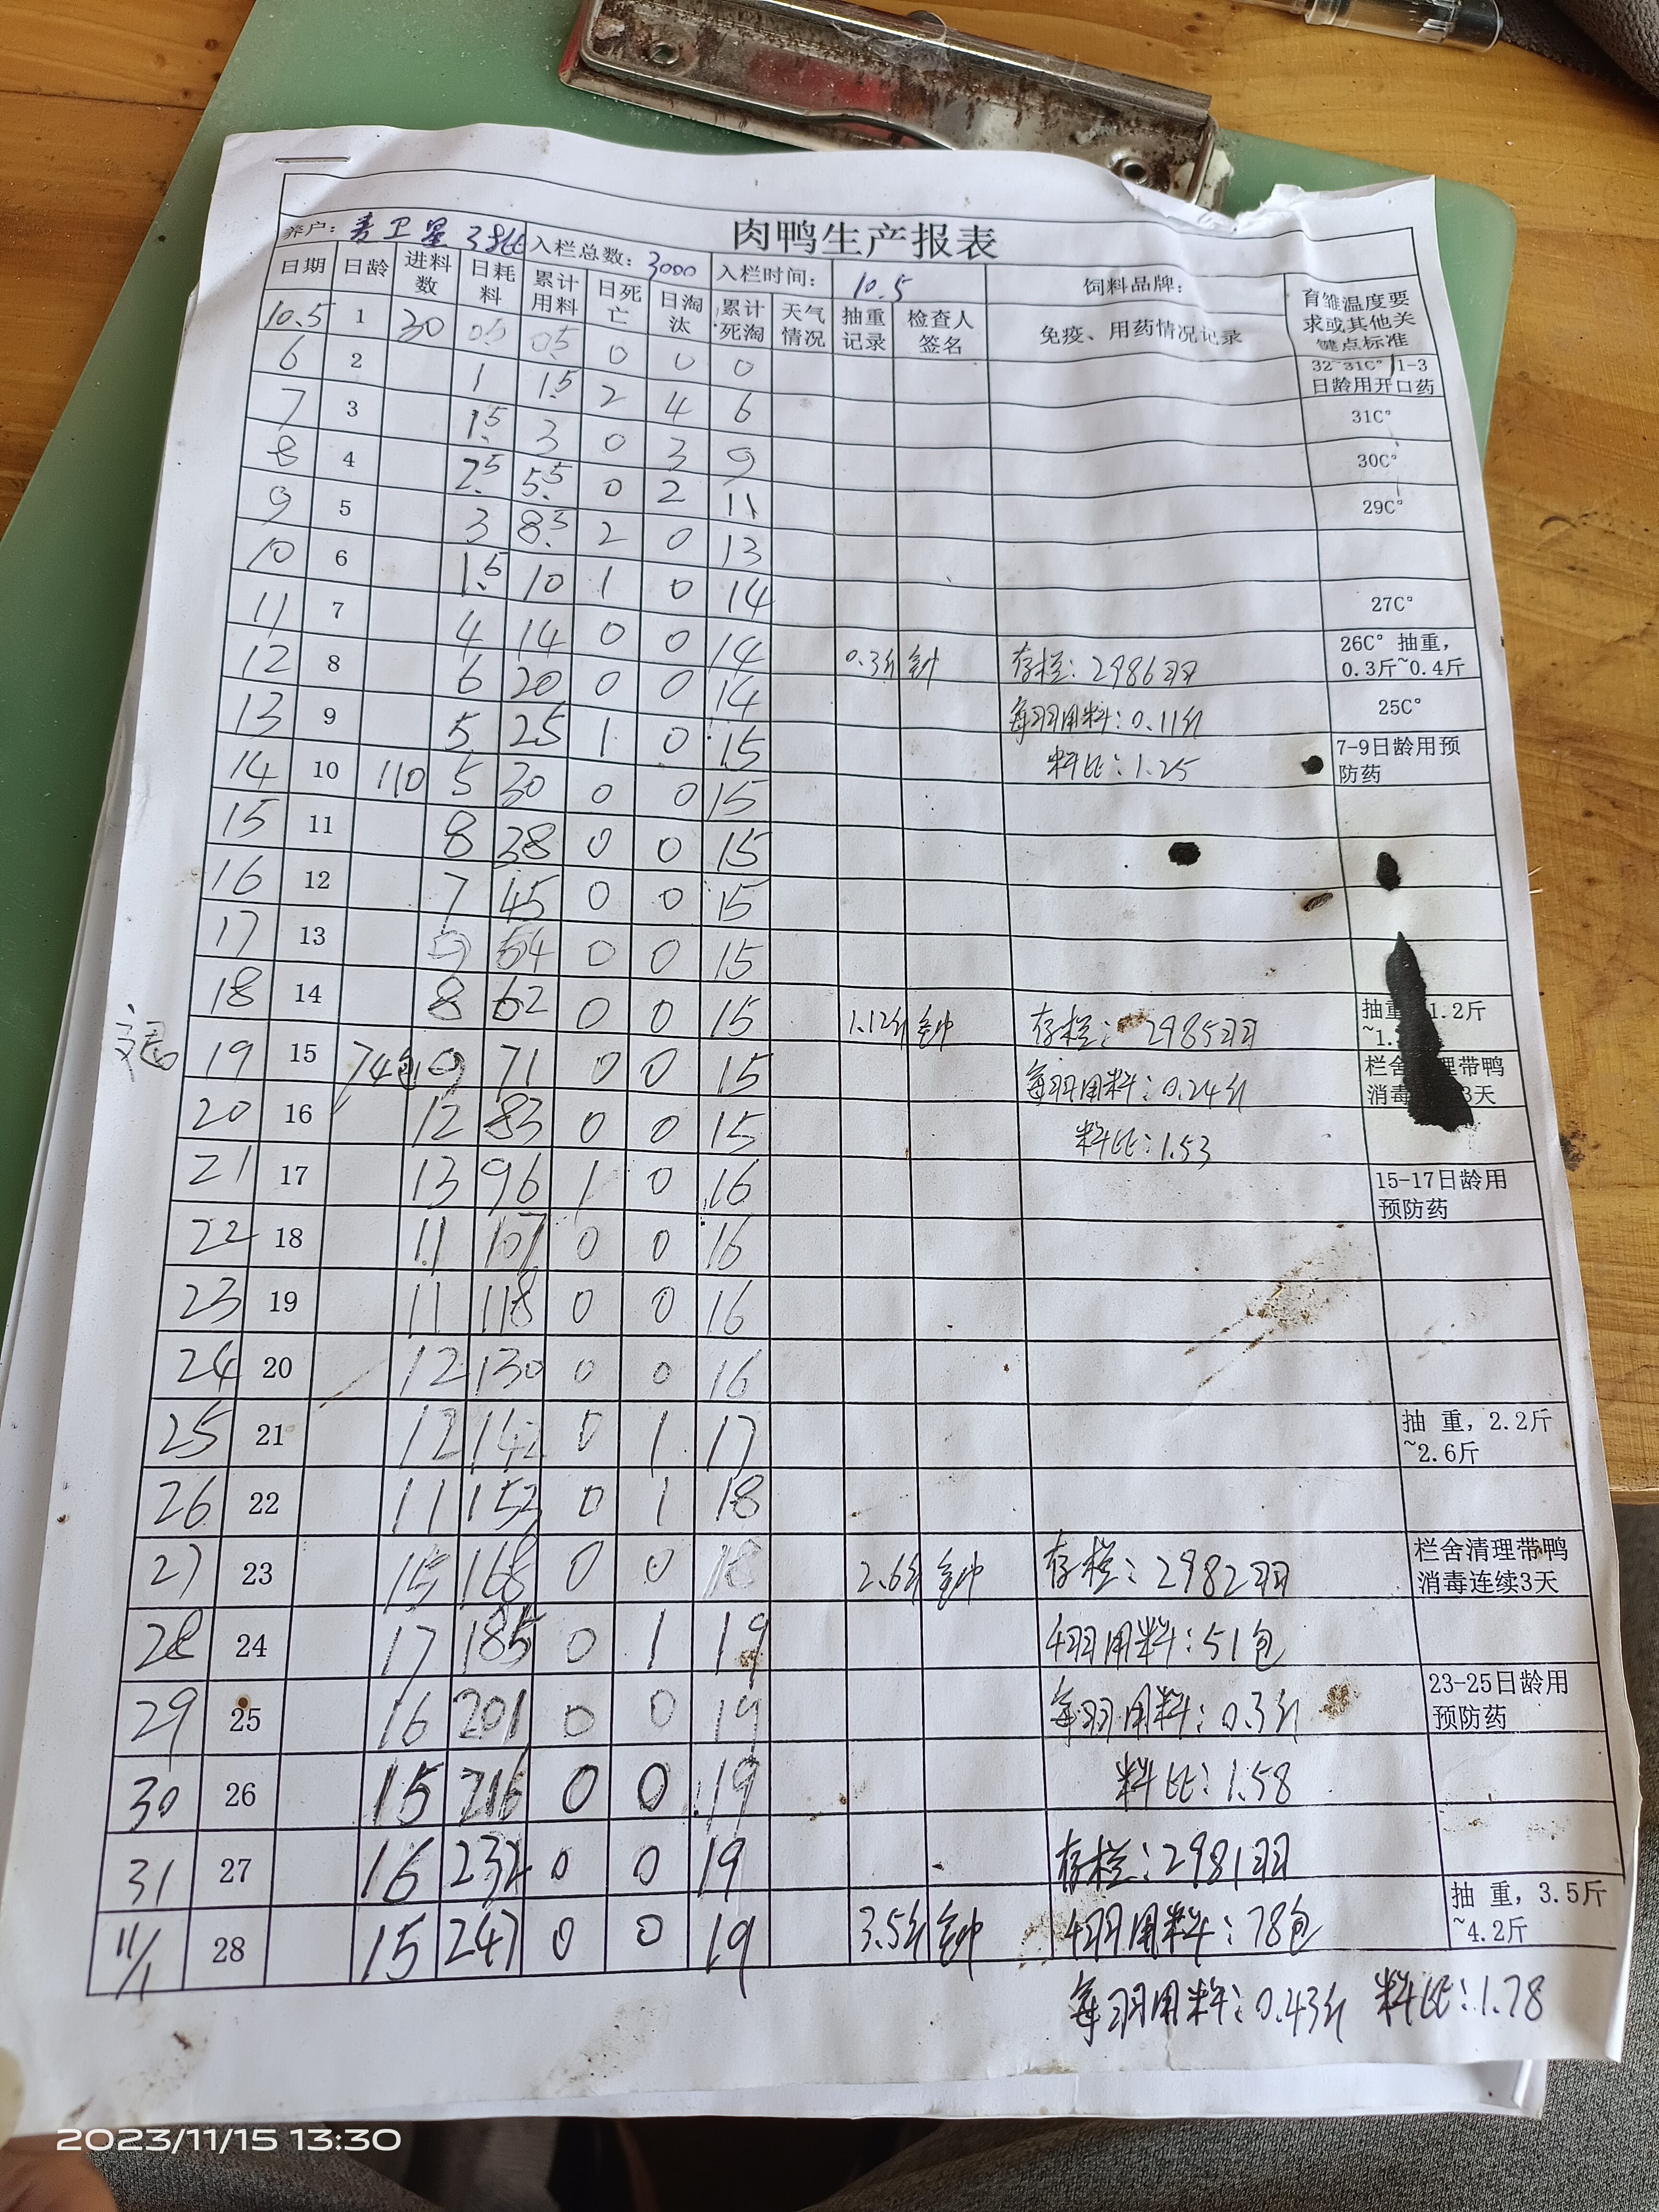 肉鸭生产报表
养户: 卫星 3批 入栏总数: 3000 入栏时间: 10.5 饲料品牌:
日期 日龄 进料数 日耗料 累计用料 日死亡 日淘汰 累计死淘 天气情况 抽重记录 检查人签名 免疫、用药情况记录 育雏温度要求或其他关键点标准
10.5 1 30 0.5 0.5 0 0 0 32~31C° 1-3日龄用开口药
6 2 1 1.5 2 4 6 31C°
7 3 1.5 3 0 3 9 30C°
8 4 2.5 5.5 0 2 11 29C°
9 5 3 8.5 2 0 13
10 6 1.5 10 1 0 14 27C°
11 7 4 14 0 0 14 0.3斤 存栏: 2986羽 26C° 抽重, 0.3斤~0.4斤
12 8 6 20 0 0 14 每羽用料: 0.11斤 25C°
13 9 5 25 1 0 15 料比: 1.25 7-9日龄用预防药
14 10 110 5 30 0 0 15
15 11 8 38 0 0 15
16 12 7 45 0 0 15
17 13 9 54 0 0 15
18 14 8 62 0 0 15 1.12斤 存栏: 2985羽 抽重 1.2斤~1.
19 15 74包 9 71 0 0 15 每羽用料: 0.24斤 栏舍 理带鸭消毒 3天
20 16 12 83 0 0 15 料比: 1.53
21 17 13 96 1 0 16 15-17日龄用预防药
22 18 11 107 0 0 16
23 19 11 118 0 0 16
24 20 12 130 0 0 16
25 21 12 142 0 1 17 抽 重, 2.2斤~2.6斤
26 22 11 153 0 1 18
27 23 15 168 0 0 18 2.6斤 存栏: 2982羽 栏舍清理带鸭消毒连续3天
28 24 17 185 0 1 19 用料: 51包
29 25 16 201 0 0 19 每羽用料: 0.3斤 23-25日龄用预防药
30 26 15 216 0 0 19 料比: 1.58
31 27 16 232 0 0 19 存栏: 2981羽
11/1 28 15 247 0 0 19 3.5斤 用料: 78包 抽 重, 3.5斤~4.2斤
每羽用料: 0.43斤 料比: 1.78
2023/11/15 13:30